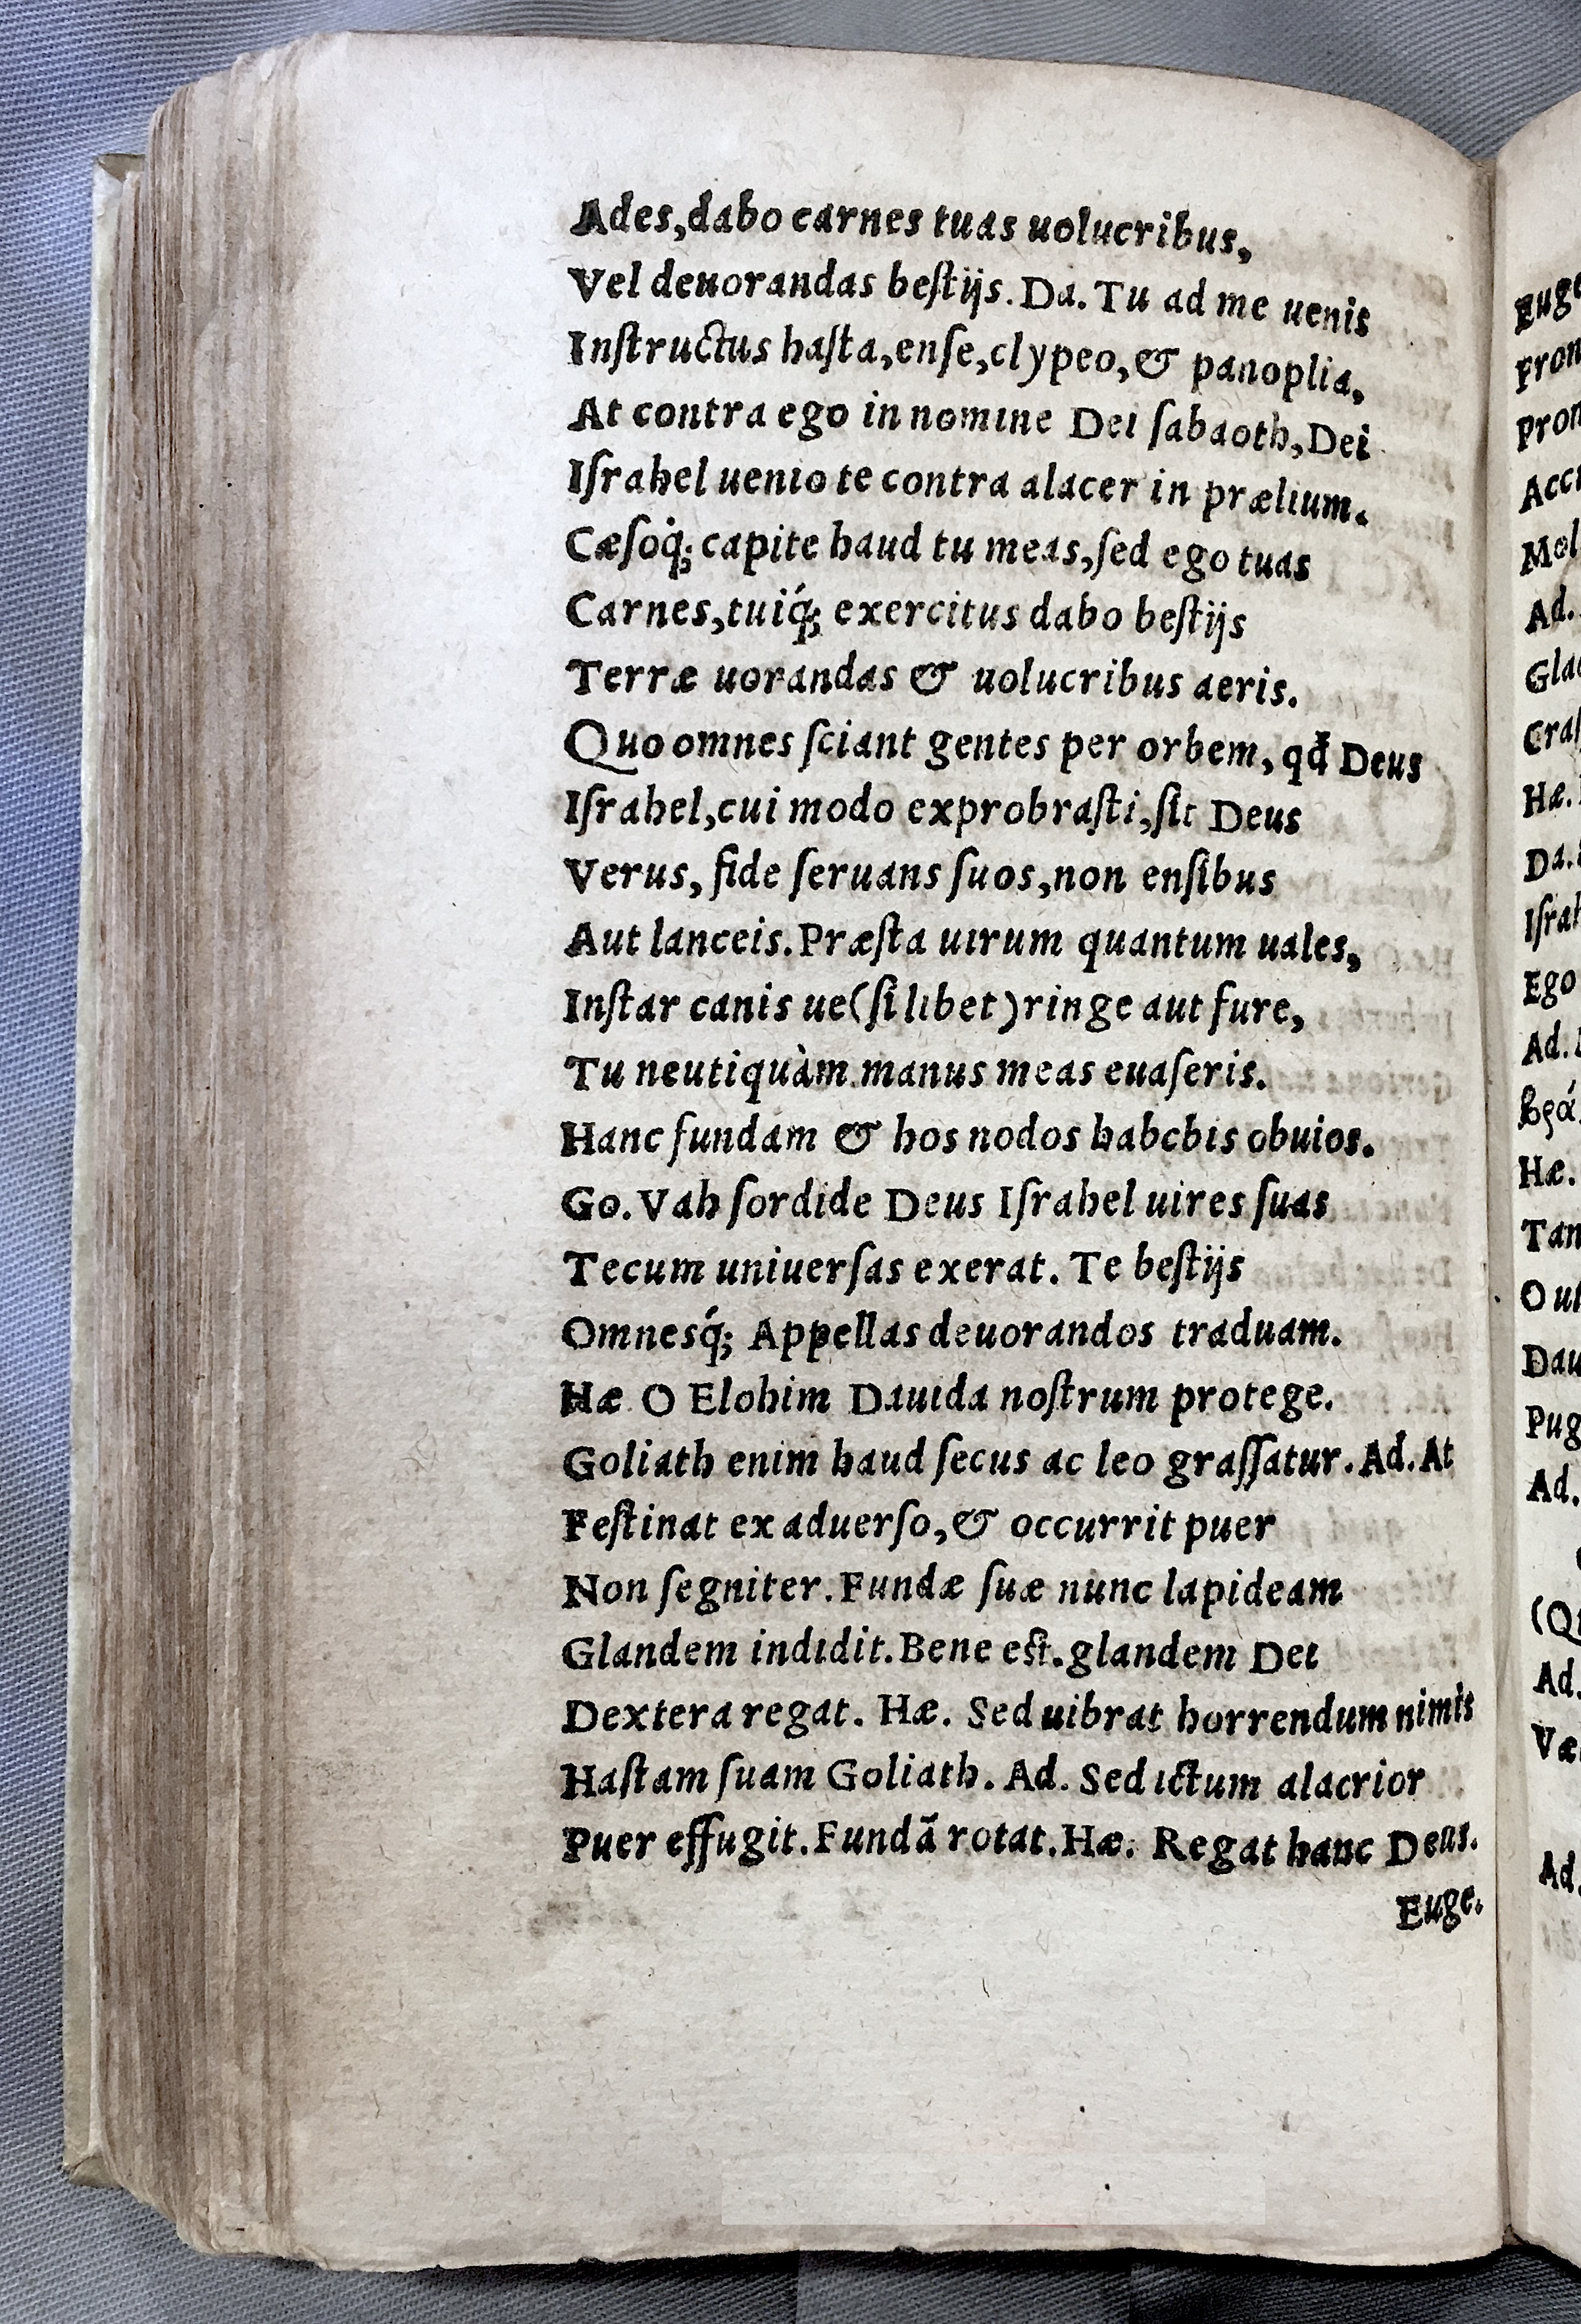 Ades,dabo carnes tuas uolucribus,
Vel deuorandas beſtijs. Da. Tu ad me uenis
Inſtructus haſta,enſe,clypeo,& panoplia,
At contra ego in nomine Dei ſabaoth,Dei
Iſrahel uenio te contra alacer in prælium.
Cæſoq́; capite haud tu meas,ſed ego tuas
Carnes,tuiq́; exercitus dabo beſtijs
Terræ uorandas & uolucribus aeris.
Quo omnes ſciant gentes per orbem, qđ Deus
Iſrahel,cui modo exprobraſti,ſit Deus
Verus, fide ſeruans ſuos,non enſibus
Aut lanceis. Præſta uirum quantum uales,
Inſtar canis ue(ſi libet)ringe aut fure,
Tu neutiquàm manus meas euaſeris.
Hanc fundam & hos nodos habcbis obuios.
Go. Vah ſordide Deus Iſrahel uires ſuas
Tecum uniuerſas exerat. Te beſtijs
Omnesq́; Appellas deuorandos traduam.
Hæ O Elohim Dauida noſtrum protege.
Goliath enim haud ſecus ac leo graſſatur. Ad. At
Feſtinat ex aduerſo,& occurrit puer
Non ſegniter. Fundæ ſuæ nunc lapideam
Glandem indidit. Bene eſt. glandem Dei
Dextera regat. Hæ. Sed uibrat horrendum nimis
Haſtam ſuam Goliath. Ad. Sed ictum alacrior
Puer effugit. Fundã rotat. Hæ. Regat hanc Deus.
Euge.
Euge
Fron
Pron
Acci
Mol
Ad.
Glad
Craſ
Hæ.
Da.
Iſrah
Ego
Ad.
Hæ.
Tan
O ut
Dau
Pug
Ad.
(Qu
Ad.
Væ
Ad.